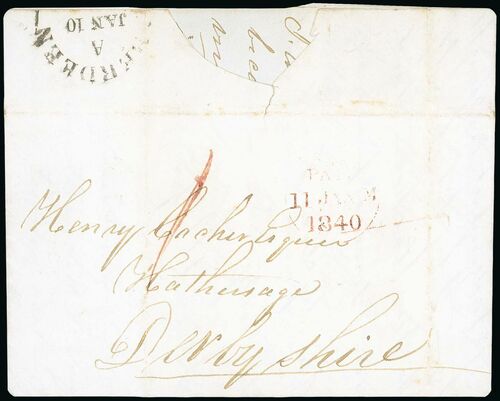 ABERDEEN
A
JAN 10
1
PAID
11 JAN M
1840
Henry Cocker Esquire
Hathersage
Derbyshire